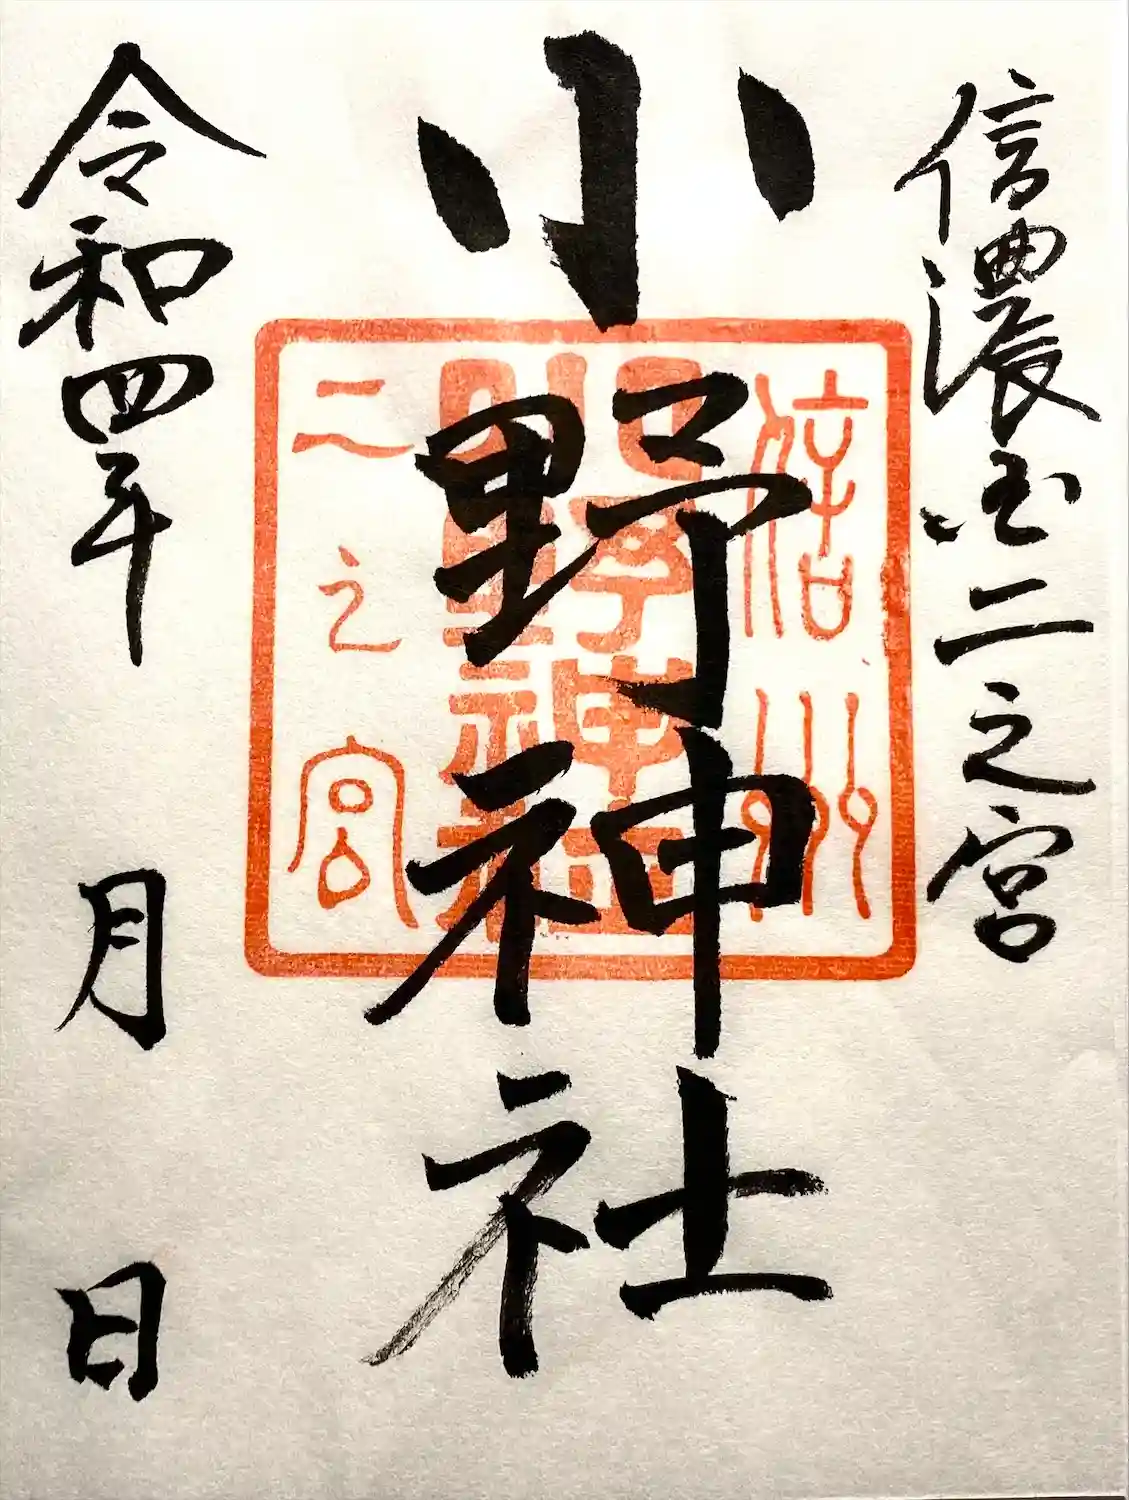 信濃国二之宮
小野神社
令和四年 月 日
信州
小野神社
二之宮